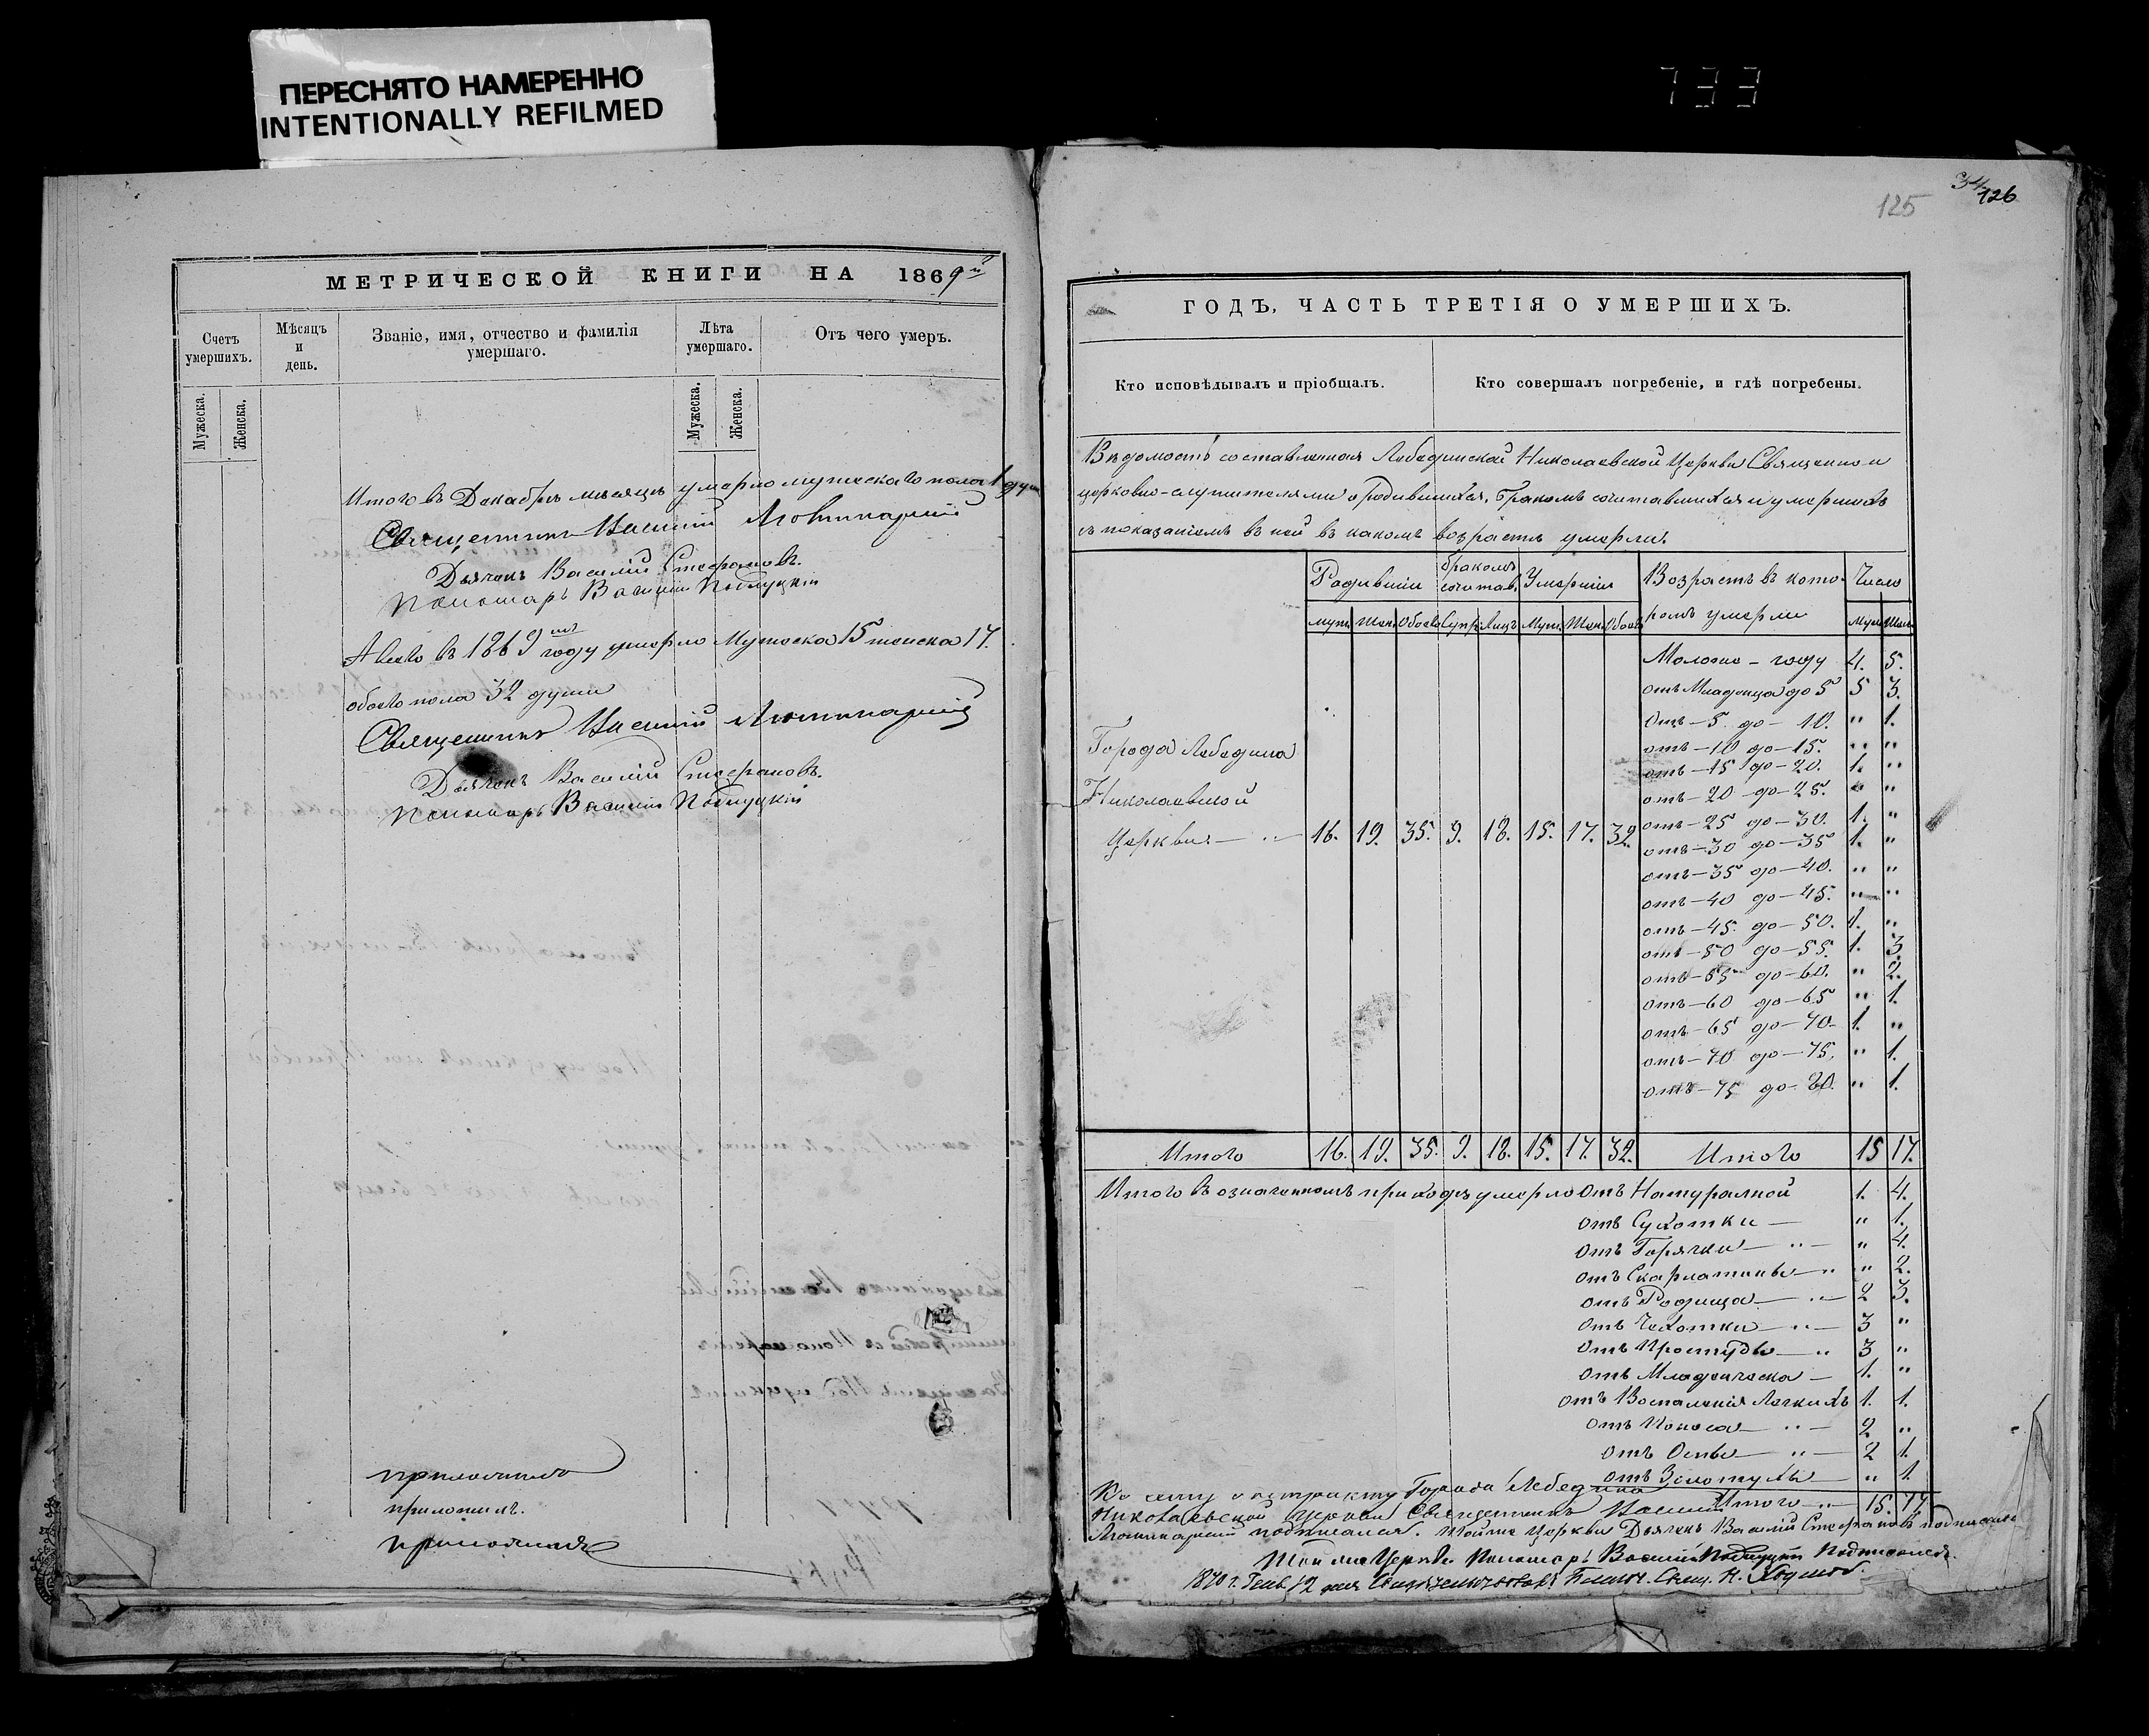 ПЕРЕСНЯТО НАМЕРЕННО
INTENTIONALLY REFILMED
733
МЕТРИЧЕСКОЙ КНИГИ НА 1869й
Счетъ умершихъ.
Мѣсяцъ и день.
Званіе, имя, отчество и фамилія умершаго.
Лѣта умершаго.
Отъ чего умеръ.
Мужеска. Женска.
Мужеска. Женска.
Итого въ Декабрѣ мѣсяцѣ умерло мужескаго пола 1 душ
Священникъ Василій
Дьячекъ Василій Стефановъ.
Пономарь Василій
А всего въ 1869мъ году умерло Мужеска 15 женска 17.
обоего пола 32 души
Священникъ Василій
Дьячекъ Василій Стефановъ.
Пономарь Василій
приложилъ.
34
126
125
ГОДЪ, ЧАСТЬ ТРЕТІЯ О УМЕРШИХЪ.
Кто исповѣдывалъ и пріобщалъ.
Кто совершалъ погребеніе, и гдѣ погребены.
Вѣдомость составленная Лебединской Николаевской Церкви Священно и
церковно-служителями о Родившихся, бракомъ сочитавшихся и умершихъ
съ показаніемъ въ ней въ какомъ возрастѣ умерли.
Родившіи бракомъ сочитав. Умершіи Возрастъ въ кото- Число
муж. Жен. Обоего Супр. Лицъ Муж. Жен. Обоег ромъ умерли Муж Жен.
году 4. 5.
отъ Младенца до 5 5 3.
Отъ – 5 до – 10. " 1.
отъ – 10 до – 15. " "
отъ – 15 до – 20. 1. "
отъ – 20 до – 25. " "
отъ – 25 до – 30. 1. "
отъ – 30 до – 35 1. "
отъ – 35 до – 40. " "
отъ – 40 до – 45. " "
отъ – 45 до – 50. 1. "
отъ – 50 до – 55. 1. 3
отъ – 55 до – 60. " 2.
отъ – 60 до – 65 " 1.
отъ – 65 до – 70 1. "
отъ – 70 до – 75. " 1.
отъ – 75 до – 80. " 1.
Города Лебедина
Николаевской
Церкви – 16. 19. 35. 9. 18. 15. 17. 32.
Итого 16. 19. 35. 9. 18. 15. 17. 32. Итого 15 17.
Итого въ означенномъ приходѣ умерло отъ Натуральной 1. 4.
отъ Сухотки – " 1.
отъ Горячки – " – " 4.
отъ Скарлатины – " " 2.
отъ Родимца – " – 2 3.
отъ Чехотки – " – 3 "
отъ Простуды – " 3 "
отъ Младенческа – 1. "
отъ Воспаленія Легкихъ 1. 1.
отъ Поноса – " – 2 "
отъ Оспы – " – 2 1.
отъ Золотухи – " 1.
Итого – " – 15. 17.
Къ сему экстракту Города Лебедина
Николаевской Церкви Священникъ Василій
подписался. Тойже Церкви Дьячекъ Василій Стефановъ подписался
Той же Церкви Пономарь Василій Подписался.
1870 г. Генв. 12 дня Свящ. Н.